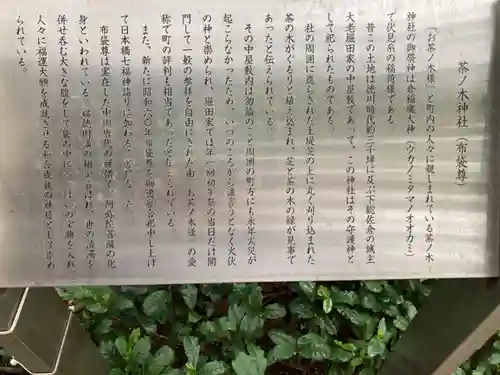 茶ノ木神社(布袋尊)
「お茶ノ木様」と町内の人々に親しまれている茶ノ木
神社の御祭神は倉稲魂大神(ウカノミタマノオオカミ)
で伏見系の稲荷様である。
昔この土地は徳川時代約三千坪に及ぶ下総佐倉の城主
大老堀田家の中屋敷であって、この神社はその守護神と
して祀られたものである。
社の周囲に巡らされた土堤芝の上に丸く刈り込まれた
茶の木がぐるりと植え込まれ、芝と茶の木の緑が見事で
あったと伝えられている。
その中屋敷内は勿論のこと周囲の町方にも永年火災が
起こらなかったため、いつのころから誰言うとなく火伏
の神と崇められ、堀田家では年一回初午祭の当日だけ開
門して一般の参拝を自由にされた由 お茶ノ木様 の愛
称で町の評判も相当であったと伝えられている。
また、新たに昭和六〇年布袋尊を御遷座合祀申し上げ
て日本橋七福神詣りに加わることと
布袋尊は実在した中国唐代の禅僧で、阿弥陀菩薩の化
身といわれている。福徳円満の相が喜ばれ、世の清濁を
併せ呑む大きな腹をして袋の中にいっぱいの宝物を入れ
人々に福運大願を成就させる和合成就の神様として崇め
られている。